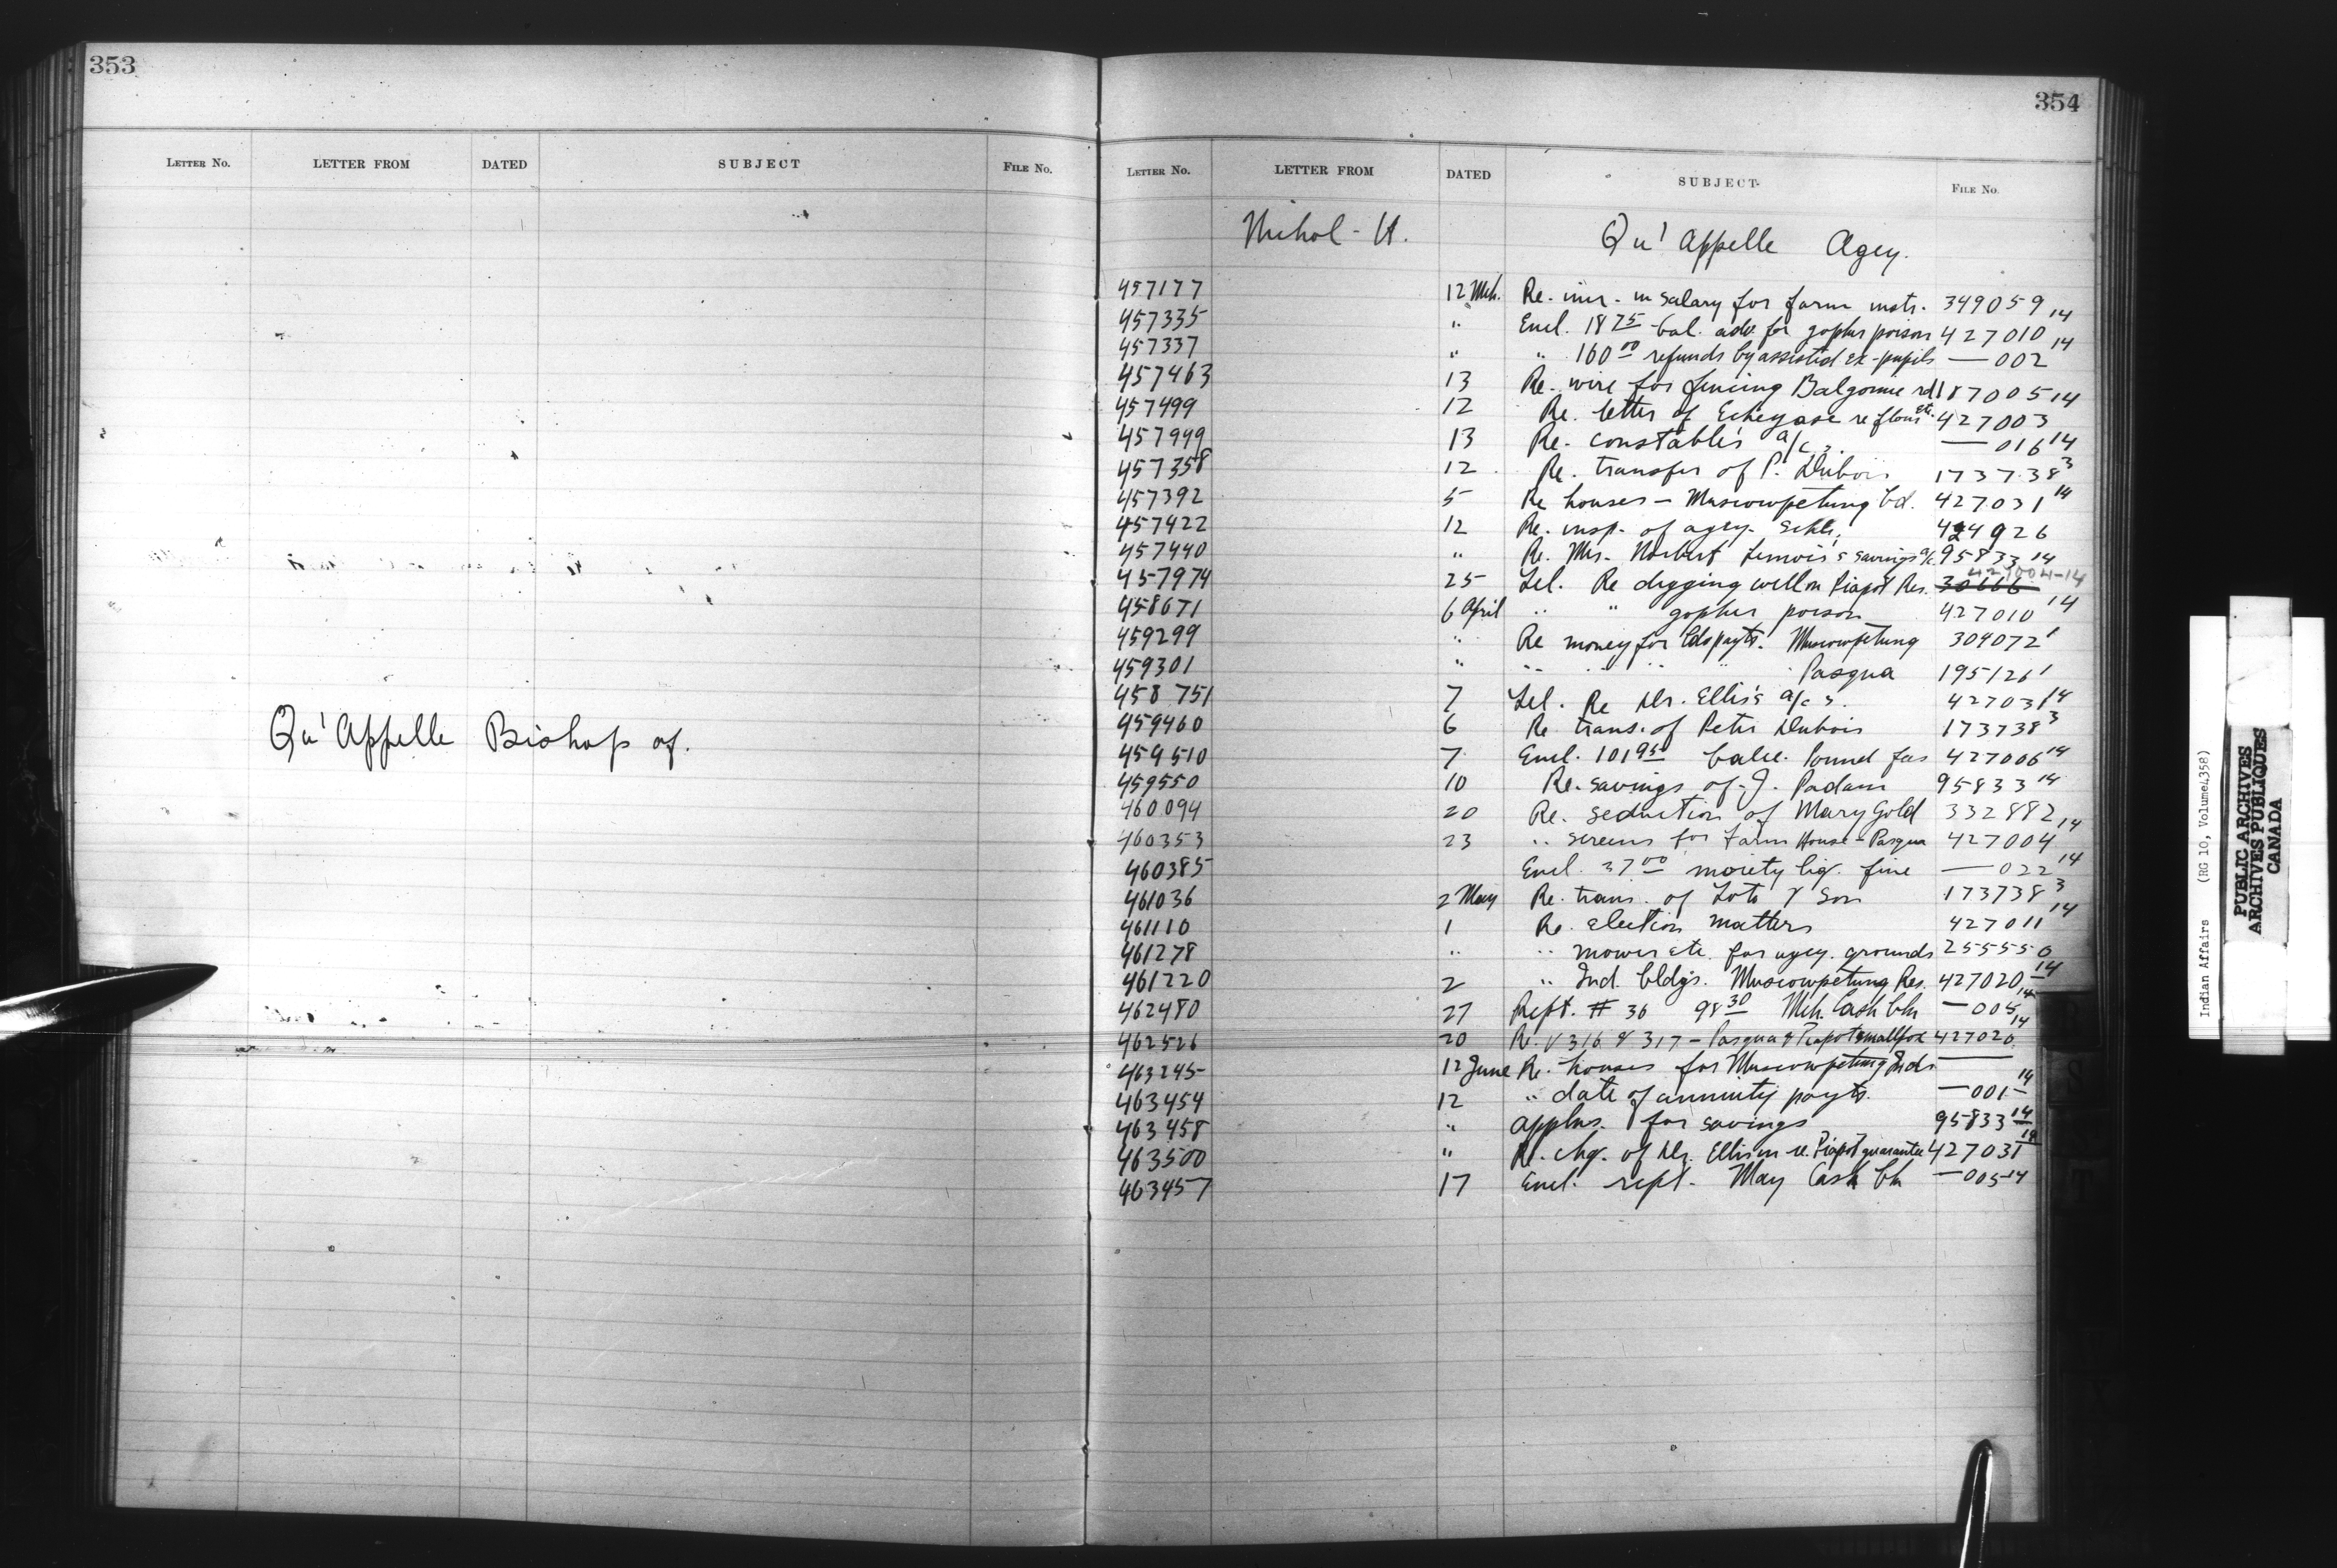 353
LETTER No. LETTER FROM DATED SUBJECT FILE No.
Qu'Appelle Bishop of.
354
LETTER No. LETTER FROM DATED SUBJECT FILE No.
Nichol - H. Qu'Appelle Agcy.
457177 12 Mch. Re. incr. in salary for farm instr. 349059 14
457335 " Encl. 18 75 bal. adv. for gopher poison 427010 14
457337 " " 160 00 refunds by assisted ex-pupils — 002
457463 13 Re. wire for fencing Balgonie rd 187005 14
457499 12 Re. letter of re flour etc. 427003
457949 13 Re. constable's a/cs. — 016 14
457358 12 Re. transfer of P. Dubois 173738 3
457392 5 Re houses - Muscowpetung bd. 427031 14
457422 12 Re. insp. of agcy. schls. 424926
457440 " Re. Mrs. Norbert savings a/c 95833 14
457974 25 Tel. Re digging well on Piapot Res. 30666 427004-14
458671 6 April " " gopher poison 427010 14
459299 " Re money for payts. Muscowpetung 309072 1
459301 " " " " " Pasqua 195126 1
458751 7 Tel. Re Dr. Ellis's a/cs. 427031 14
459460 6 Re trans. of Peter Dubois 173738 3
459510 7 Encl. 101 95 balce. Pound fees 427006 14
459550 10 Re. savings of J. Padam 95833 14
460094 20 Re. seduction of Mary Gold 332882
460353 23 " screens for Farm House - Pasqua 427004 14
460385 Encl. 37 00 moiety liq. fine — 022 14
461036 2 May Re. trans. of Loto & Son 173738 3
461110 1 Re. election matters 427011 14
461278 " " mower etc. for agcy. grounds 255550
461220 2 " Ind. bldgs. Muscowpetung Res. 427020 14
462480 27 Rept. # 36 98 30 Mch. Cash bk — 005 14
462526 20 Re. V 316 & 317 - Pasqua & Piapot smallpox 427026 14
463245 12 June Re. houses for Muscowpetung Inds ——
463454 12 " date of annuity payts. — 001 14
463458 " applns. for savings 95833 14
463500 " Re. chg. of Dr. Ellis in re. Piapot quarantee 427031 14
463457 17 Encl. rept. May Cash bk — 005 14
Indian Affairs (RG 10, Volume 4358)
PUBLIC ARCHIVES
ARCHIVES PUBLIQUES
CANADA